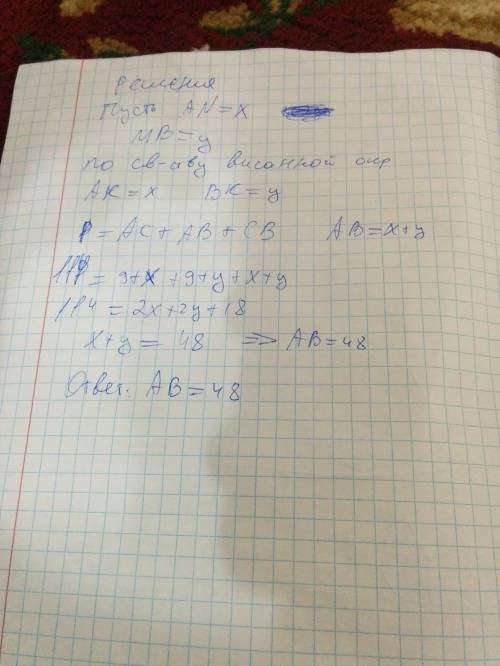 Решения
Пусть AN=x
MB=y
по св-тву вписанной окр
AK=x BK=y
P=AC+AB+CB AB=x+y
114=9+x+9+y+x+y
114=2x+2y+18
x+y=48 => AB=48
Ответ: AB=48